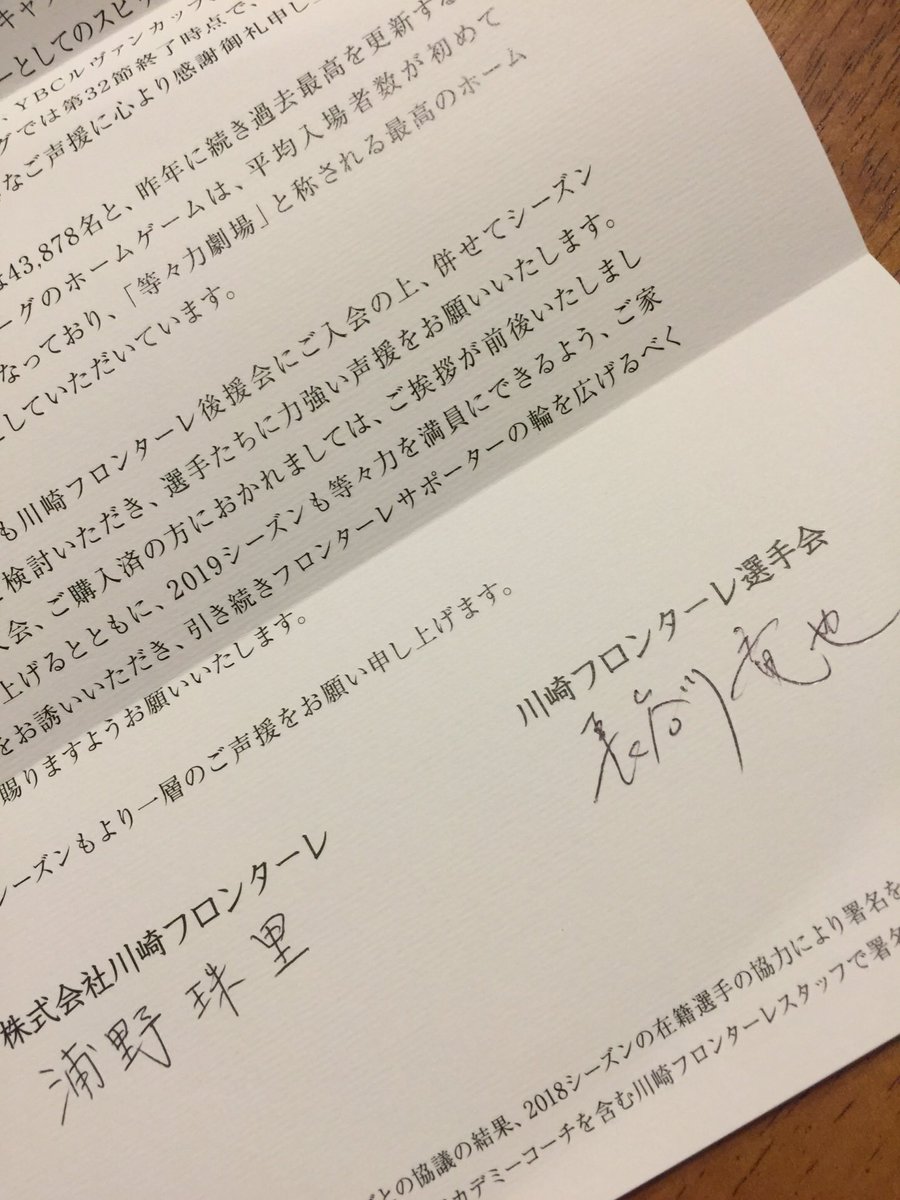 キャプ
ーとしてのスピリッ
、YBCルヴァンカップ、
グでは第32節終了時点で、
なご声援に心より感謝御礼申し上
43,878名と、昨年に続き過去最高を更新する
ーグのホームゲームは、平均入場者数が初めて
なっており、「等々力劇場」と称される最高のホーム
していただいています。
も川崎フロンターレ後援会にご入会の上、併せてシーズン
検討いただき、選手たちに力強い声援をお願いいたします。
会、ご購入済の方におかれましては、ご挨拶が前後いたしまし
上げるとともに、2019シーズンも等々力を満員にできるよう、ご家
をお誘いいただき、引き続きフロンターレサポーターの輪を広げるべく
賜りますようお願いいたします。
シーズンもより一層のご声援をお願い申し上げます。
川崎フロンターレ選手会
長谷川竜也
株式会社川崎フロンターレ
浦野珠里
との協議の結果、2018シーズンの在籍選手の協力により署名を
カデミーコーチを含む川崎フロンターレスタッフで署名